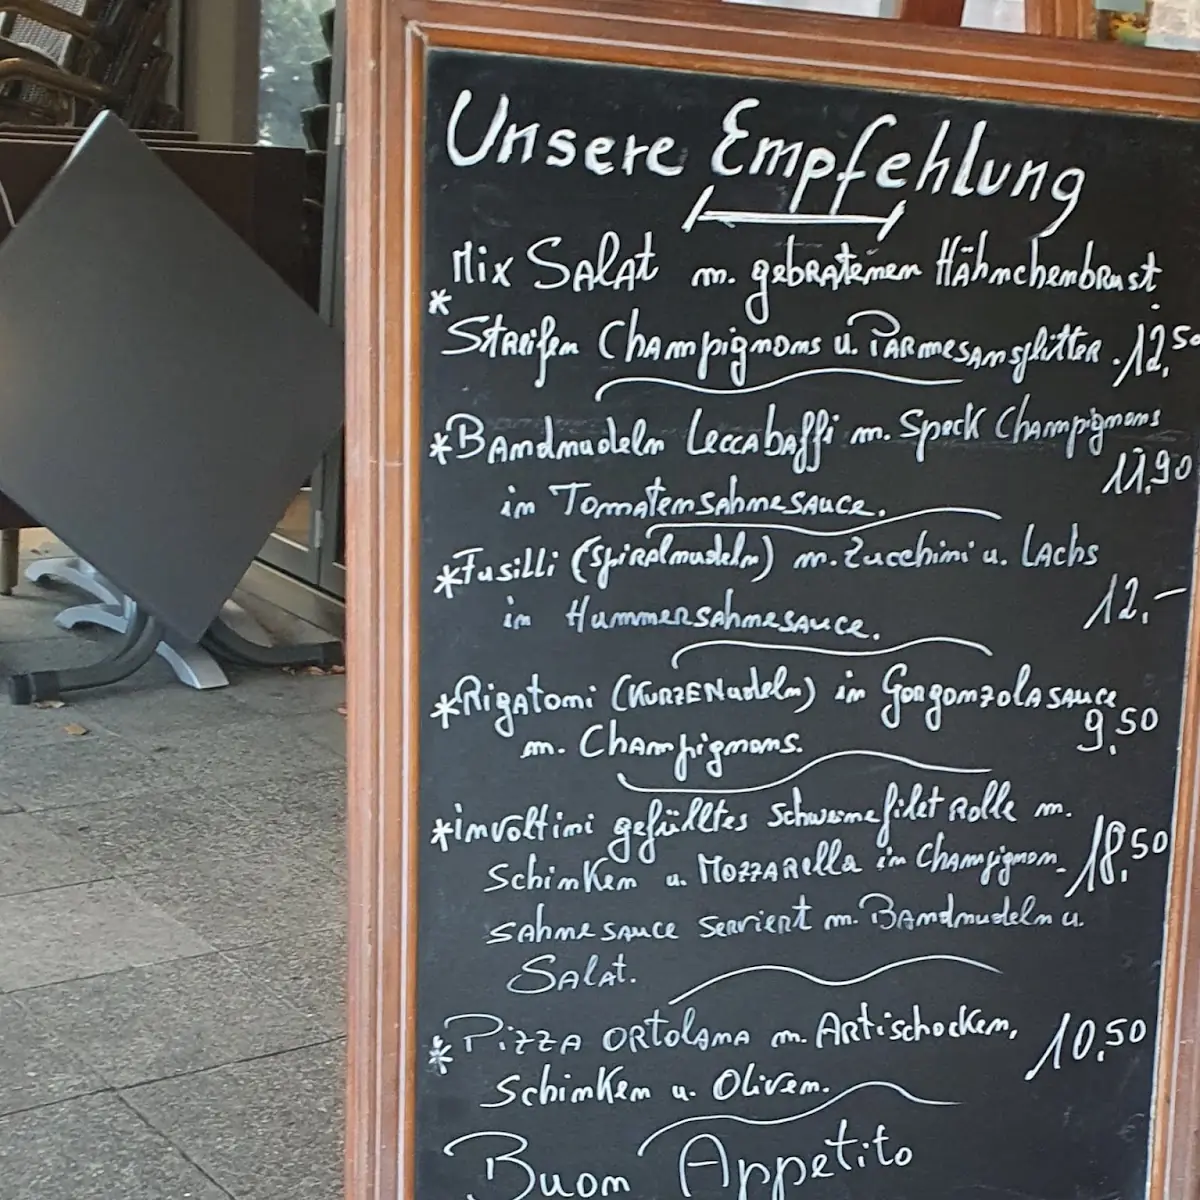 Unsere Empfehlung
Mix Salat m. gebratenen Hähnchenbrust
* Streifen Champignons u. Parmesansplitter. 12,50
*Bandnudeln Leccabaffi m. Speck Champignons
11,90
in Tomatensahnesauce.
*Fusilli (Spiralnudeln) m. Zucchini u. Lachs
in Hummersahnesauce. 12.-
*Rigatoni (KURZENudeln) in Gorgonzolasauce
m. Champignons. 9,50
*involtini gefülltes Schweinefilet Rolle m.
Schinken u. Mozzarella in Champignon- 18,50
sahnesauce serviert m. Bandnudeln u.
Salat.
*Pizza ORTolana m. Artischocken, 10,50
Schinken u. Oliven.
Buon Appetito